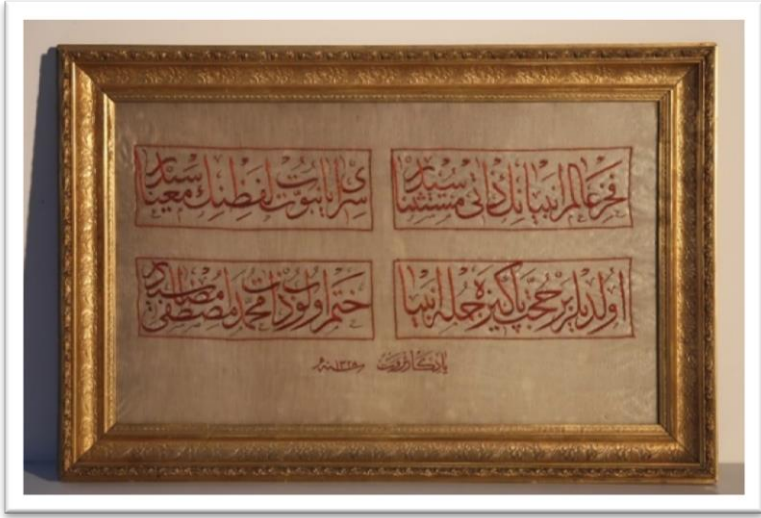 فخر عالم انبيانك ذاتى مستثناسيدر
نبوت لفظنك معناسيدر
اولديلر بر حجت پاكيزه جمله انبيا
ختم اولوب ذات محمد مصطفى امضاسيدر
يادكار ثروت سنه ١٣٢٤